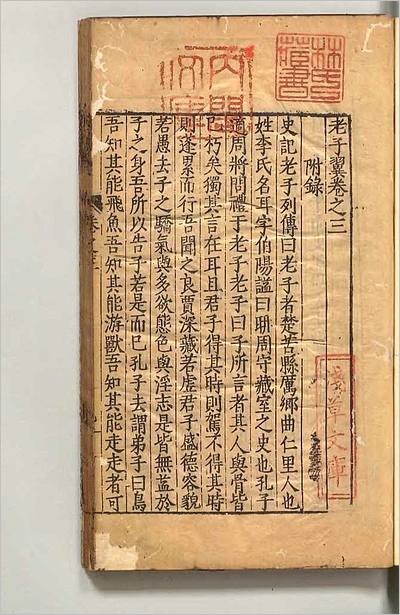 林氏藏書
淺草文庫
老子翼卷之三
附録
史記老子列傳曰老子者楚苦縣厲鄉曲仁里人也
姓李氏名耳字伯陽謚曰聃周守藏室之史也孔子
適周將問禮于老子老子曰子所言者其人與骨皆
已朽矣獨其言在耳且君子得其時則駕不得其時
則蓬累而行吾聞之良賈深藏若虛君子盛德容貌
若愚去子之驕氣與多欲態色與淫志是皆無益於
子之身吾所以告子若是而已孔子去謂弟子曰鳥
吾知其能飛魚吾知其能游獸吾知其能走走者可
卷之三